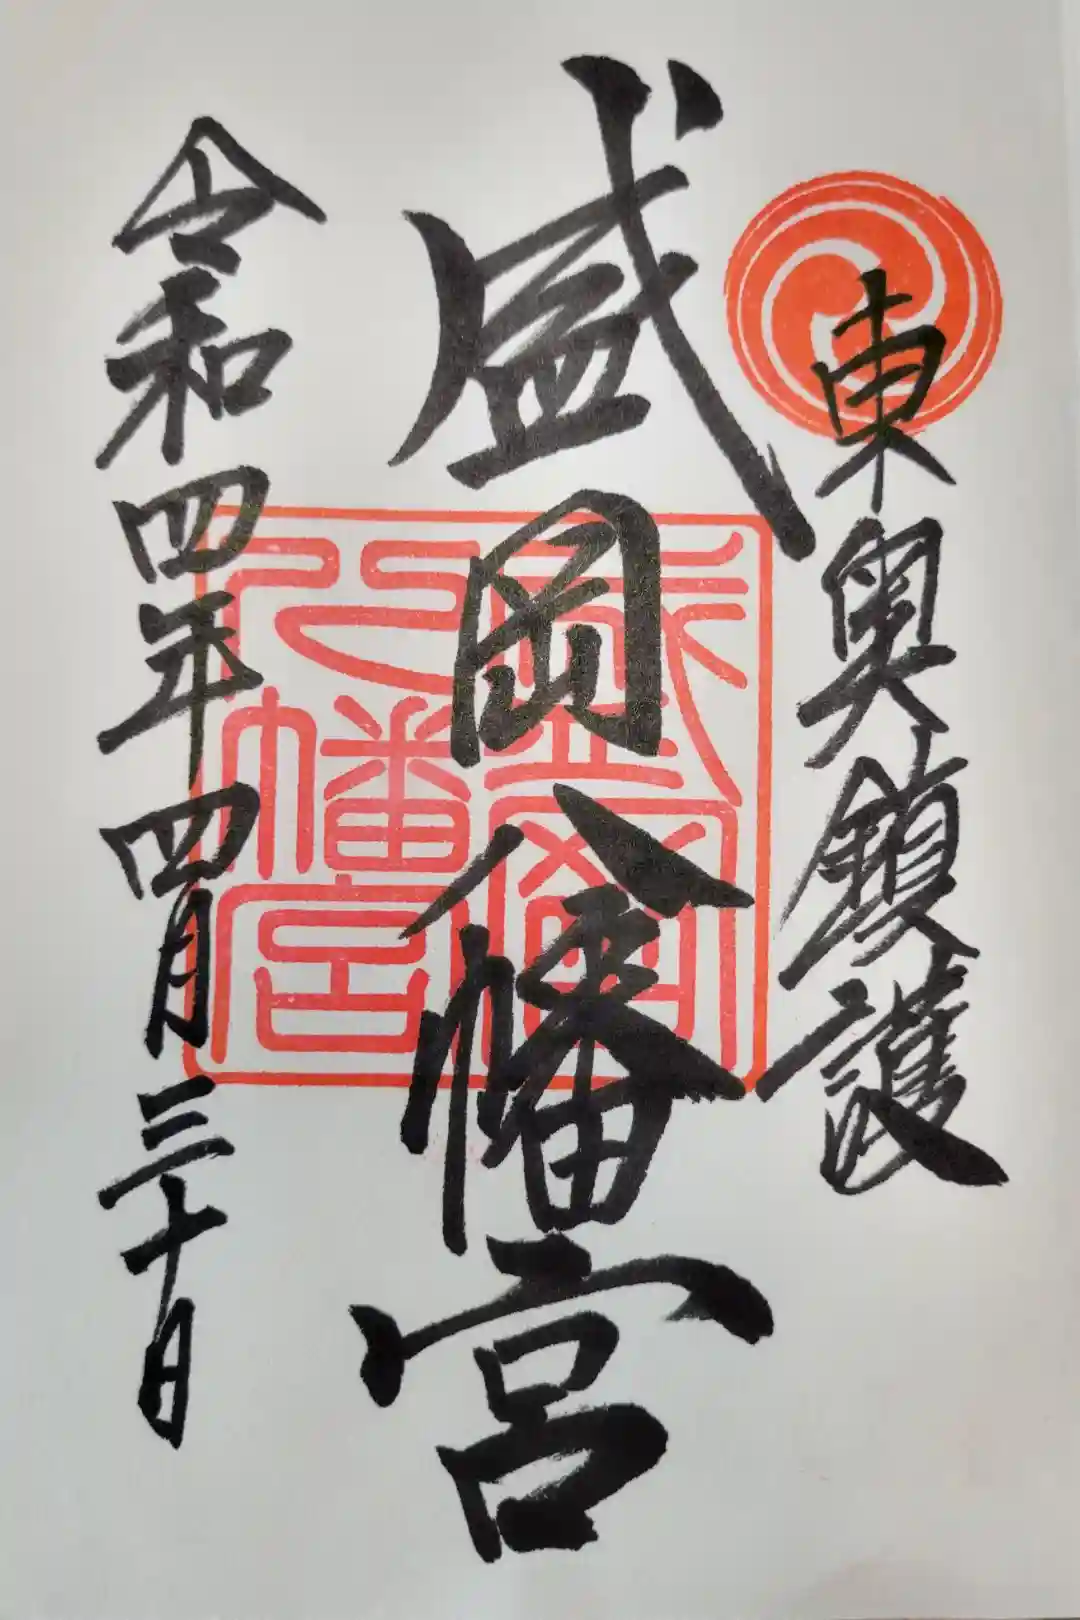 東奥鎮護
盛岡八幡宮
令和四年四月三十日
盛岡
八幡宮